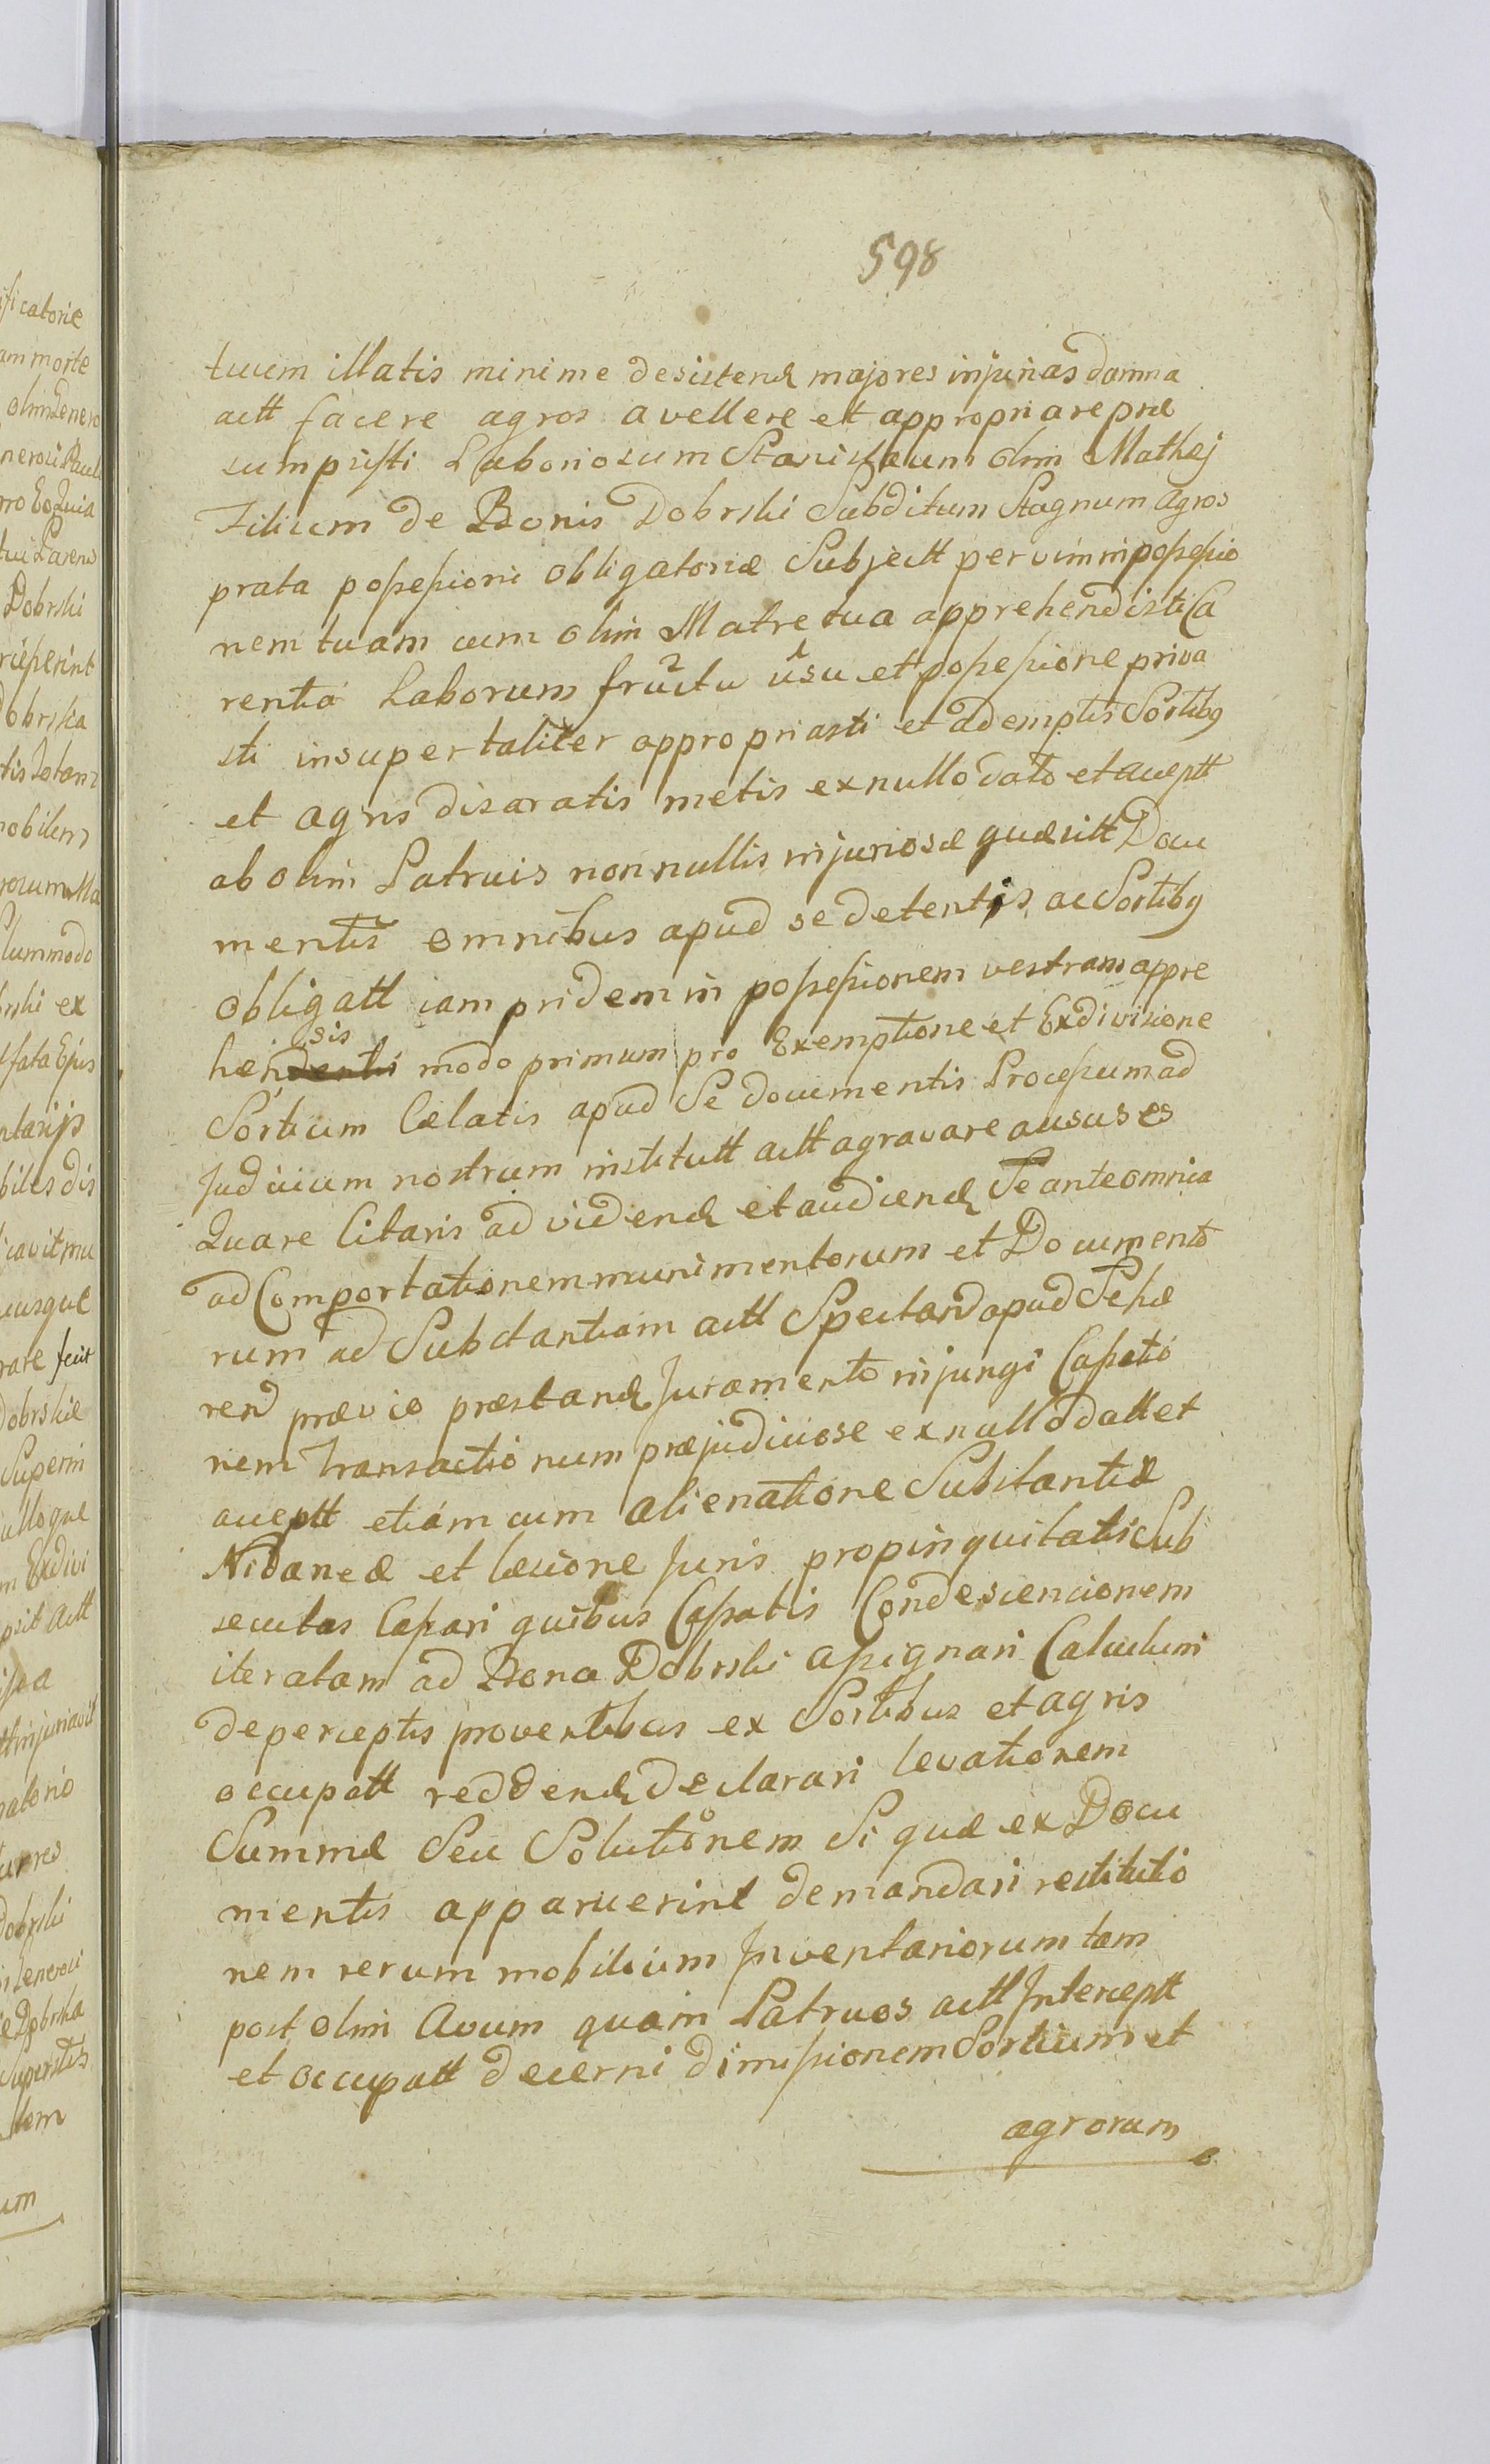 598
tuum illatis minime desistend majores injurias damna
actt facere agros avellere et appropriare præ
sumpsisti Laboriosum Stanislaum olim Mathej
Filium de Bonis Dobrski Subditum Stagnum agros
prata possessioni obligatoriæ Subjectt per vim in possessio
nem tuam cum olim Matre tua apprehendisti Ca
rentia Laborum fructu usu et possessione priva
sti insuper taliter appropriasti et ademptis Sortibg
et agris disaratis metis ex nullo dato et acceptt
ab olim Patruis non nullis injuriose quæsitt Docu
mentis omnibus apud se detentis ac Sortibg
obligatt iam pridem in possessionem vestram appre
hensis modo primum pro Exemptione et Exdivisione
Sortium Celatis apud Se documentis Processum ad
Judicium nostrum institutt actt agravare ausus es
Quare Citaris ad vidend et audiend Se ante omnia
ad Comportationem munimentorum et Documento
rum ad Substantiam actt Spectand apud Se hæ
rend prævio præstand Juramento injungi Cassatio
nem Transactionum præjudiciose ex nullo datt et
acceptt etiam cum alienatione Substantiæ
Nidaneæ et læsione Juris propinquitatis Sub
secutas Cassari quibus Cassatis Condescensionem
iteratam ad Bona Dobrski assignari Calculum
de perceptis proventibus ex Sortibus et agris
occupatt reddend declarari levationem
Summæ Seu Solutionem Si quæ ex Docu
mentis apparuerint demandari restitutio
nem rerum mobilium Inventariorum tam
post olim Avum quam Patruos actt Interceptt
et occupatt decerni dimissionem Sortium et
agrorum